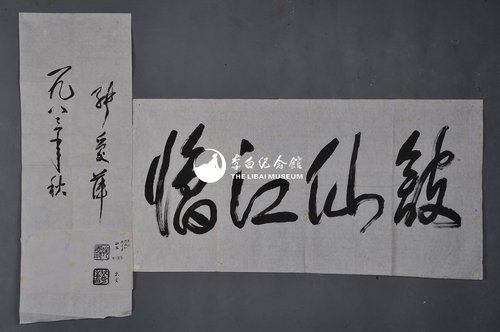 臨江仙舘
张爱萍
一九八三年秋
李白纪念館
THE LIBAI MUSEUM